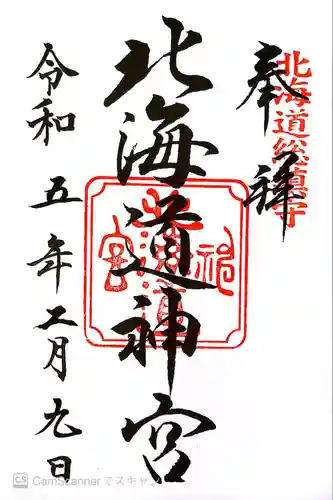 奉拝
北海道総鎮守
北海道神宮
令和五年二月九日
CS CamScannerでスキャン